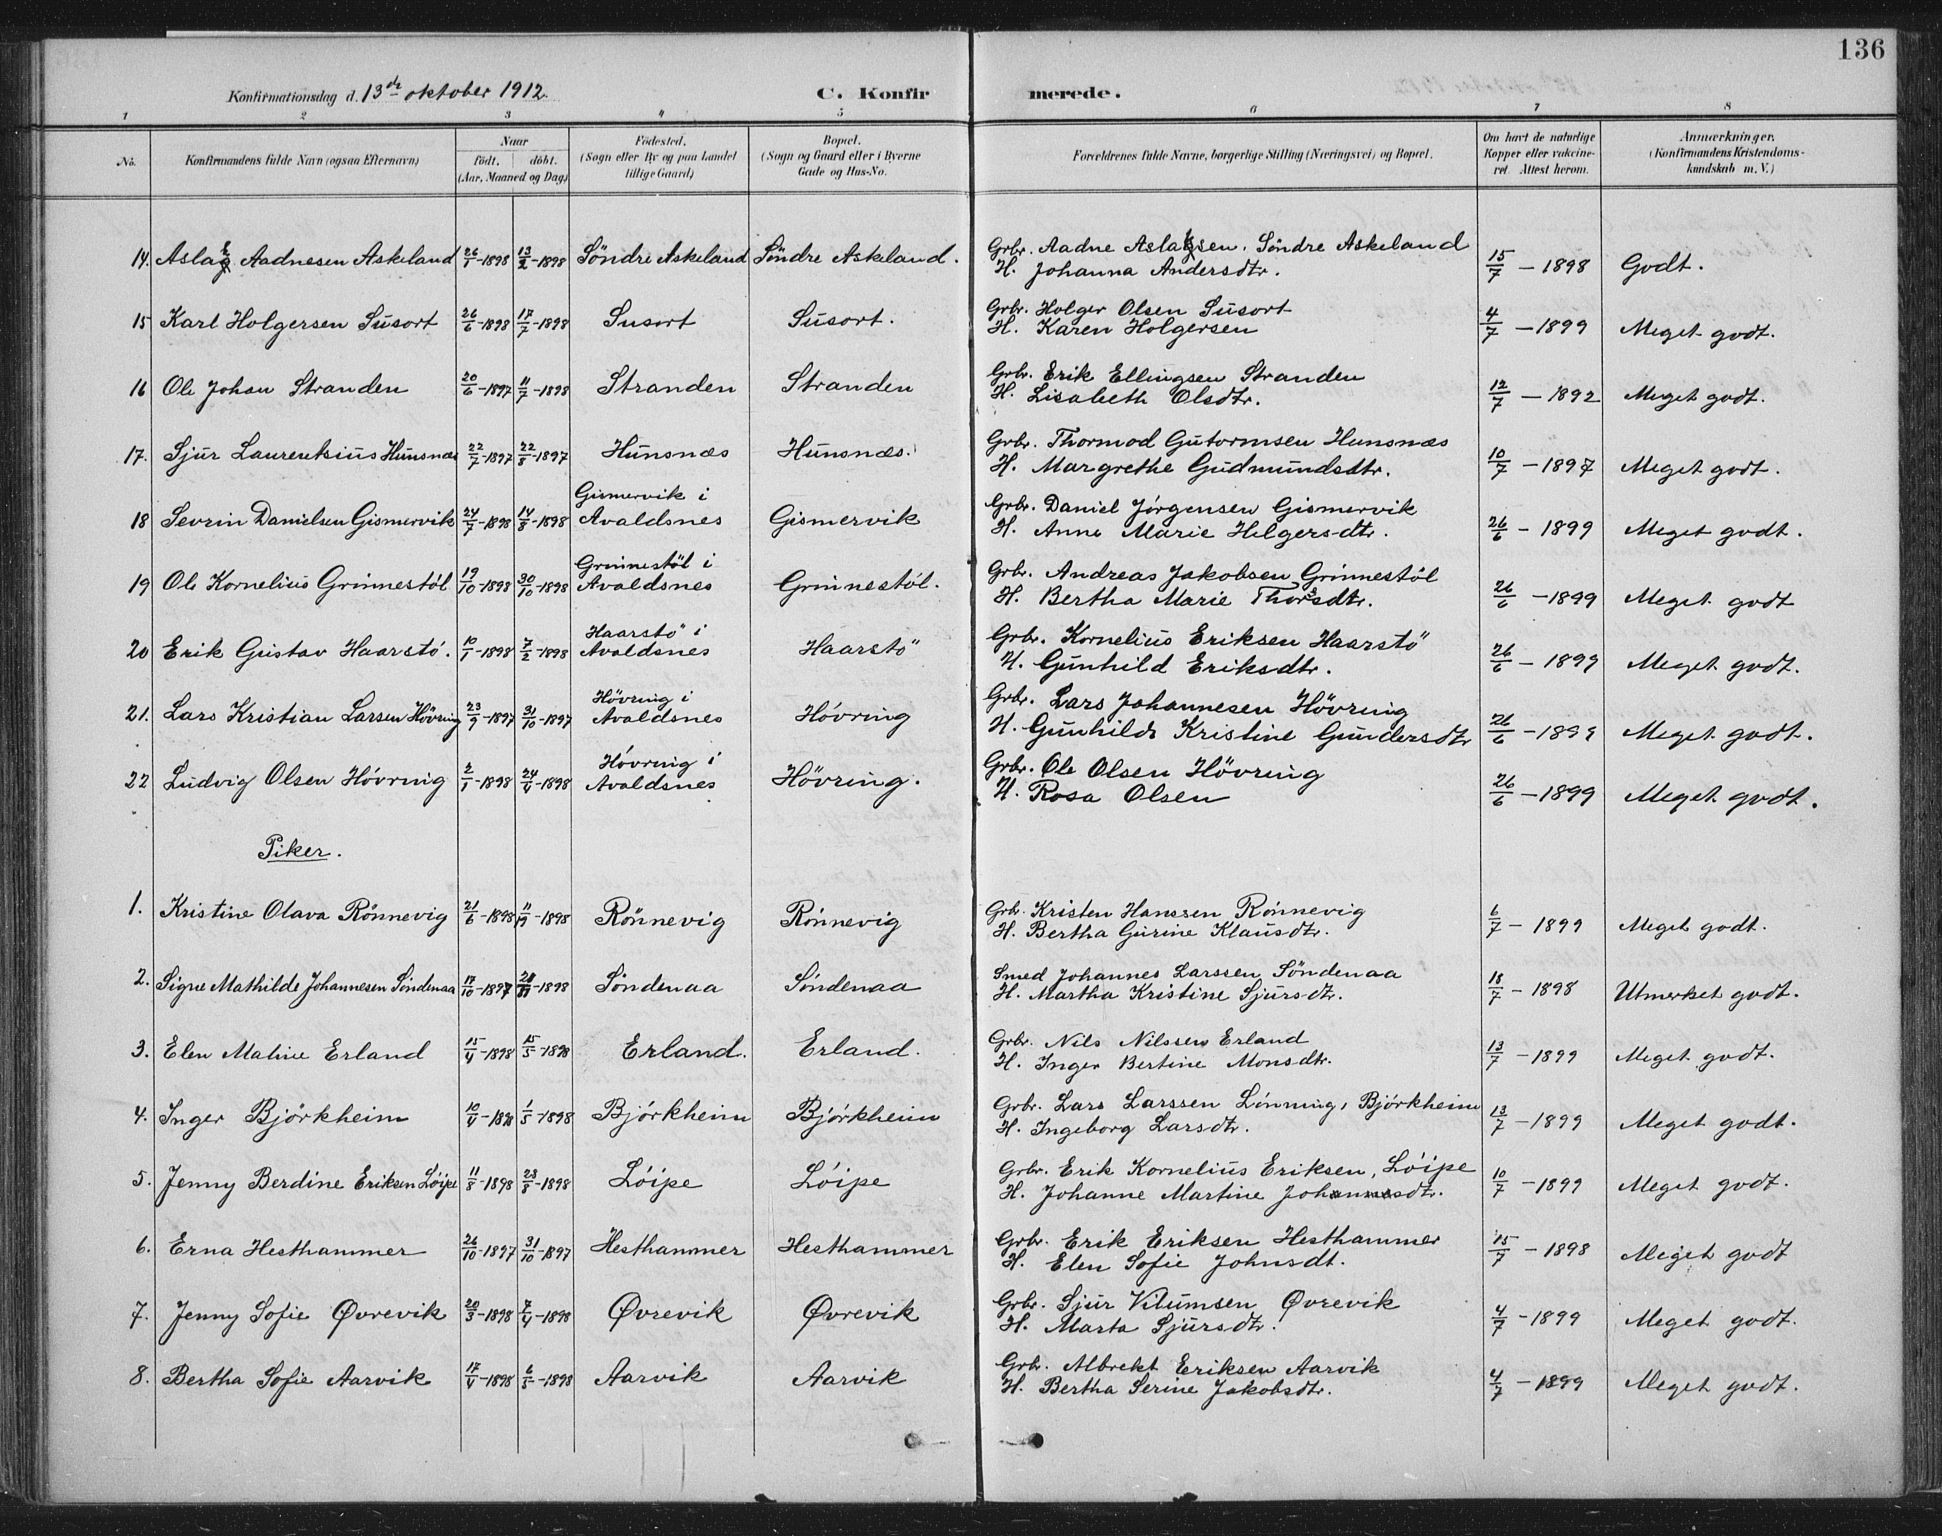 136
Konfirmationsdag d. 13de oktober 1912. C. Konfir merede.
1 2 3 4 5 6 7 8
No. Konfirmandens fulde Navn (ogsaa Efternavn) Naar födt. döbt. (Aar, Maaned og Dag) Födested. (Sogn eller By og paa Landet tillige Gaard) Bopæl. (Sogn og Gaard eller i Byerne Gade og Hus-No. Forældrenes fulde Navne, borgerlige Stilling (Næringsvei) og Bopæl. Om havt de naturlige Kopper eller vakcineret. Attest herom. Anmærkninger. (Konfirmandens Kristendomskundskab m. V.)
14. Aslak Aadnesen Askeland 26/1-1898 13/2-1898 Söndre Askeland Söndre Askeland. Grbr. Aadne Aslaksen. Söndre Askeland
H. Johanna Andersdtr. 15/7-1898 Godt.
15 Karl Holgersen Susort 26/6-1898 17/7-1898 Susort Susort. Grbr. Holger Olsen Susort
H. Karen Holgersen 4/7-1899 Meget godt.
16 Ole Johan Stranden 20/6-1897 11/7-1898 Stranden Stranden Grbr. Erik Ellingsen Stranden
H. Lisabeth Olsdtr. 12/7-1892 Meget godt.
17. Sjur Laurentsius Hunsnæs 22/7-1897 22/8-1897 Hunsnæs Hunsnæs. Grbr. Thormod Gutormsen Hunsnæs
H. Margrethe Gudmundsdtr. 10/7-1897 Meget godt.
18 Sevrin Danielsen Gismervik 24/7-1898 14/8-1898 Gismervik i Avaldsnes Gismervik Grbr. Daniel Jörgensen Gismervik
H. Anne Marie Helgersdtr. 26/6-1899 Meget godt.
19 Ole Kornelius Grinnestöl 19/10-1898 30/10-1898 Grinnestöl i Avaldsnes Grinnestöl. Grbr. Andreas Jakobsen Grinnestöl
H. Bertha Marie Thorsdtr. 26/6-1899 Meget godt
20 Erik Gustav Haarstö. 10/1-1898 7/2-1898 Haarstö i Avaldsnes Haarstö Grbr. Kornelius Eriksen Haarstö
H. Gunhild Eriksdtr. 26/6-1899 Meget godt.
21. Lars Kristian Larsen Hövring 23/9-1897 31/10-1897 Hövring i Avaldsnes Hövring Grbr. Lars Johannesen Hövring
H. Gunhilde Kristine Gundersdtr 26/6-1899 Meget godt.
22 Ludvig Olsen Hövring 2/1-1898 24/4-1898 Hövring i Avaldsnes Hövring. Grbr. Ole Olsen Hövring
H. Rosa Olsen 26/6-1899 Meget godt.
Piker.
1. Kristine Olava Rönnevig 21/6-1898 -1898 Rönnevig Rönnevig Grbr. Kristen Hanssen Rönnevig
H. Bertha Gurine Klausdtr. 6/7-1899 Meget godt.
2. Signe Mathilde Johannesen Söndenaa 17/10-1897 -1898 Söndenaa Söndenaa Smed Johannes Larssen Söndenaa
H. Martha Kristine Sjursdtr. 18/7-1898 Utmerket godt.
3. Elen Maline Erland 15/4-1898 15/5-1898 Erland. Erland. Grbr. Nils Nilssen Erland
H. Inger Bertine Monsdtr. 13/7-1899 Meget godt.
4. Inger Björkheim 10/4-1898 1/5-1898 Björkheim Björkheim Grbr. Lars Larssen Lönning, Björkheim
H. Ingeborg Larsdtr. 13/7-1899 Meget godt.
5. Jenny Berdine Eriksen Löipe 11/8-1898 23/8-1898 Löipe Löipe Grbr. Erik Kornelius Eriksen, Löipe
H. Johanne Martine Johannesdtr. 10/7-1899 Meget godt.
6. Erna Hesthammer 26/10-1897 31/10-1897 Hesthammer Hesthammer Grbr. Erik Eriksen Hesthammer
H. Elen Sofie Johnsdt. 15/7-1898 Meget godt
7. Jenny Sofie Øvrevik 20/3-1898 7/4-1898 Øvrevik Øvrevik Grbr. Sjur Vilumsen Øvrevik
H. Marta Sjursdtr. 4/7-1899 Meget godt.
8. Bertha Sofie Aarvik 17/4-1898 6/5-1898 Aarvik Aarvik Grbr. Albrekt Eriksen Aarvik
H. Bertha Serine Jakobsdtr. 4/7-1899 Meget godt.